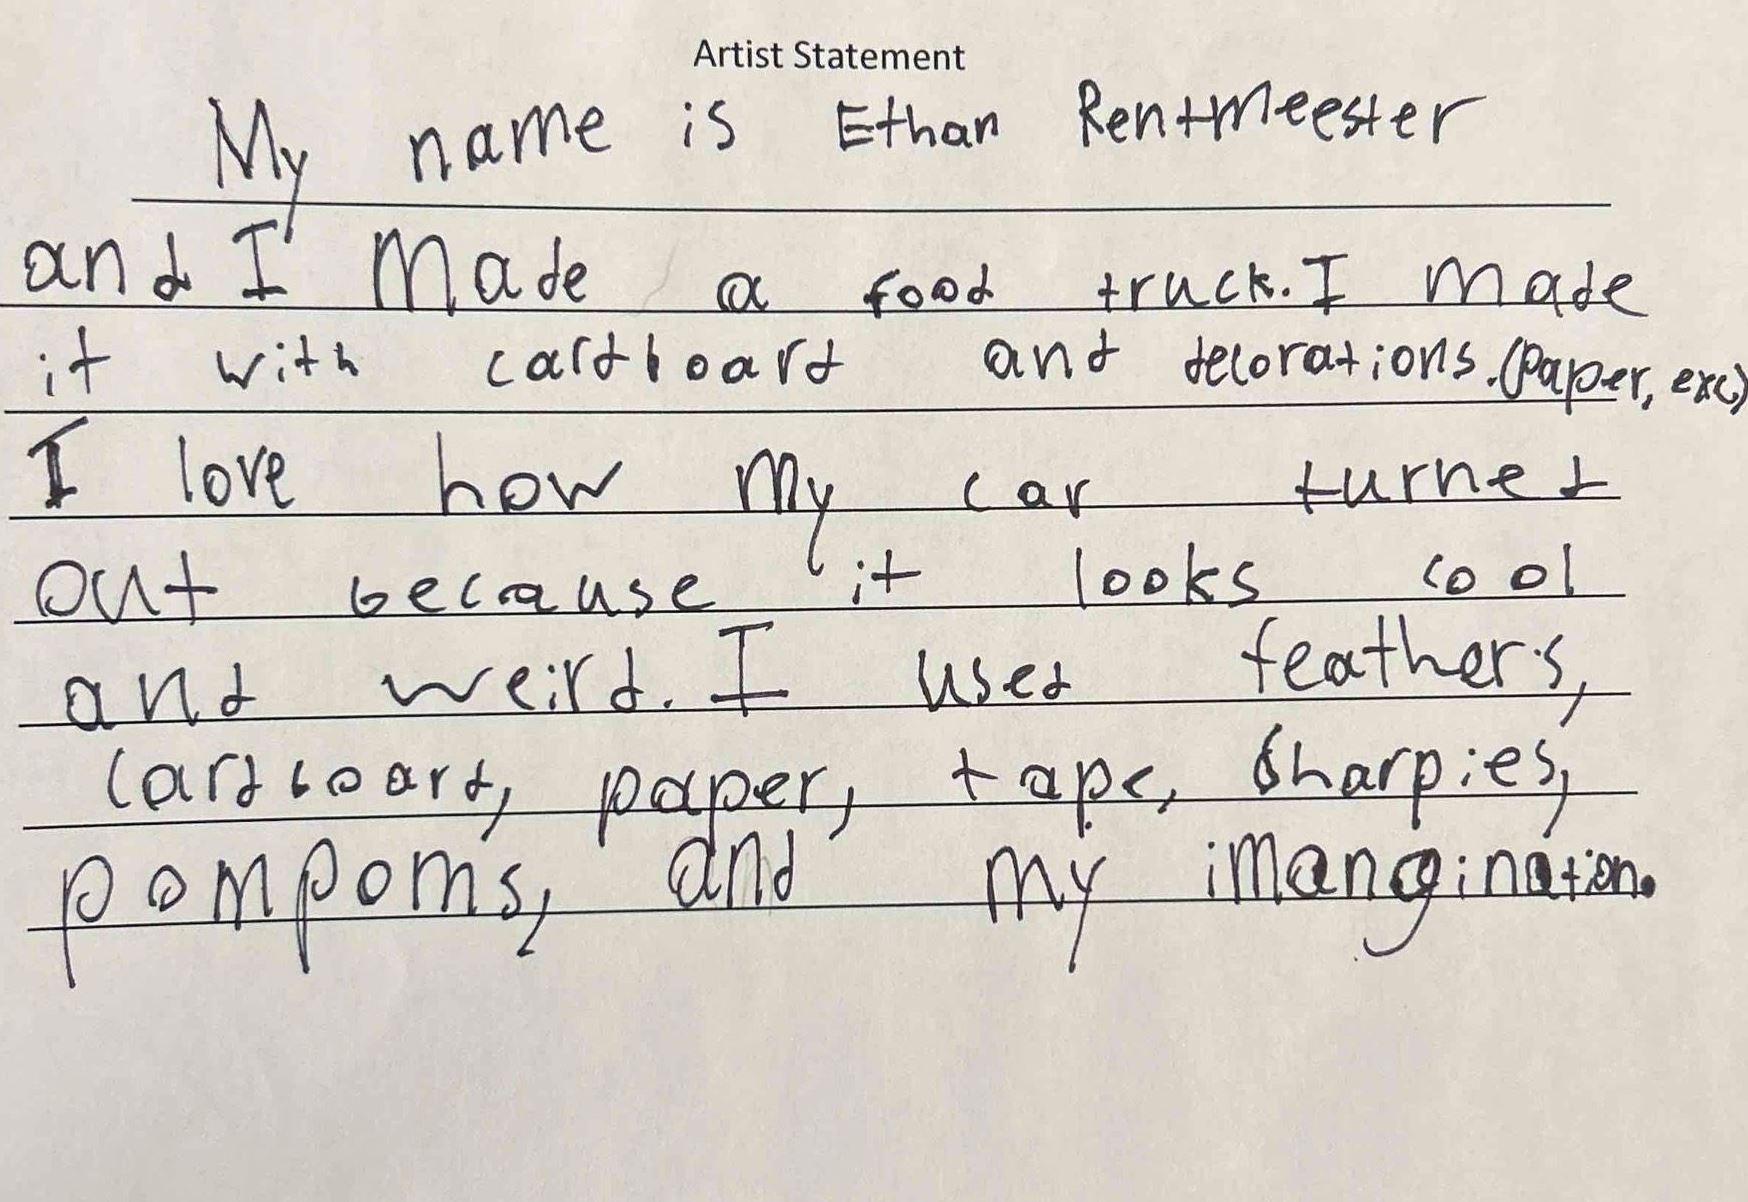 Artist Statement
My name is Ethan Rentmeester
and I Made a food truck. I made
it with cardboard and decorations. (paper, exc)
I love how my car turned
out because it looks cool
and weird. I used feathers,
cardboard, paper, tape, Sharpies,
pompoms, and my imangination.